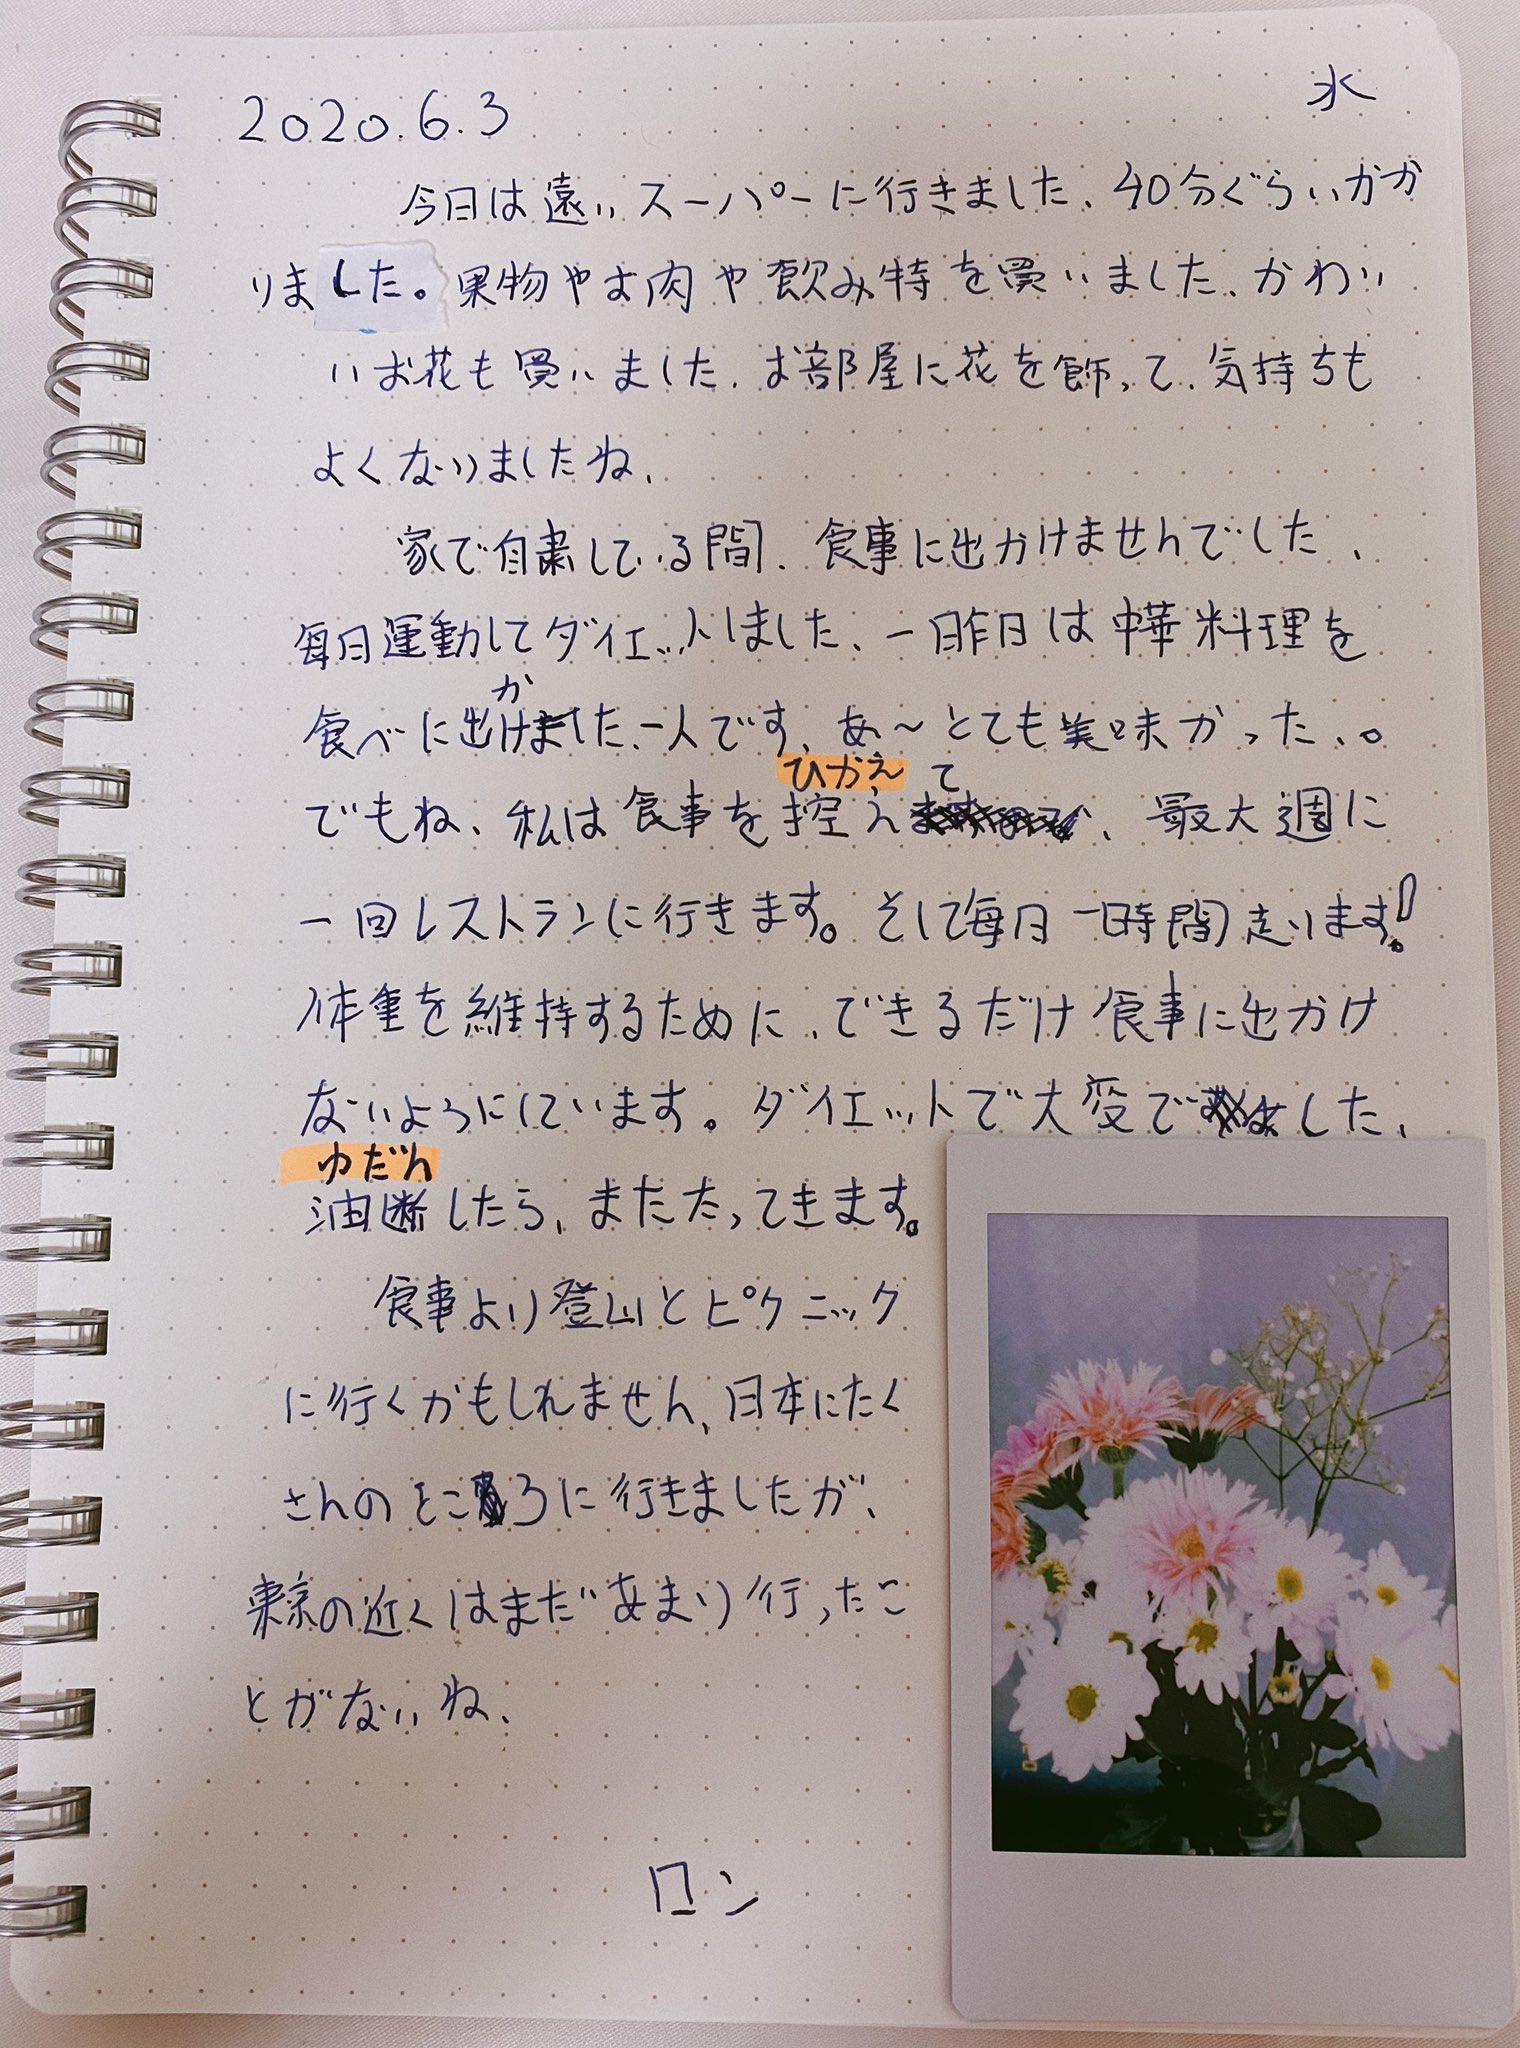 2020.6.3 水
今日は遠いスーパーに行きました、40分ぐらいかか
りました。果物やお肉や飲み特を買いました、かわい
いお花も買いました、お部屋に花を飾って、気持ちも
よくなりましたね、
家で自粛している間、食事に出かけませんでした、
毎日運動してダイエットしました、一昨日は中華料理を
か
食べに出けました、一人です、あ〜とても美味かった、。
ひかえ て
でもね、私は食事を控え、最大週に
一回レストランに行きます。そして毎日一時間走ります!
体重を維持するために、できるだけ食事に出かけ
ないようにしています。ダイエットで大変でした、
ゆだん
油断したら、またたってきます。
食事より登山とピクニック
に行くかもしれません、日本にたく
さんのところに行きましたが、
東京の近くはまだあまり行ったこ
とがないね、
ロン